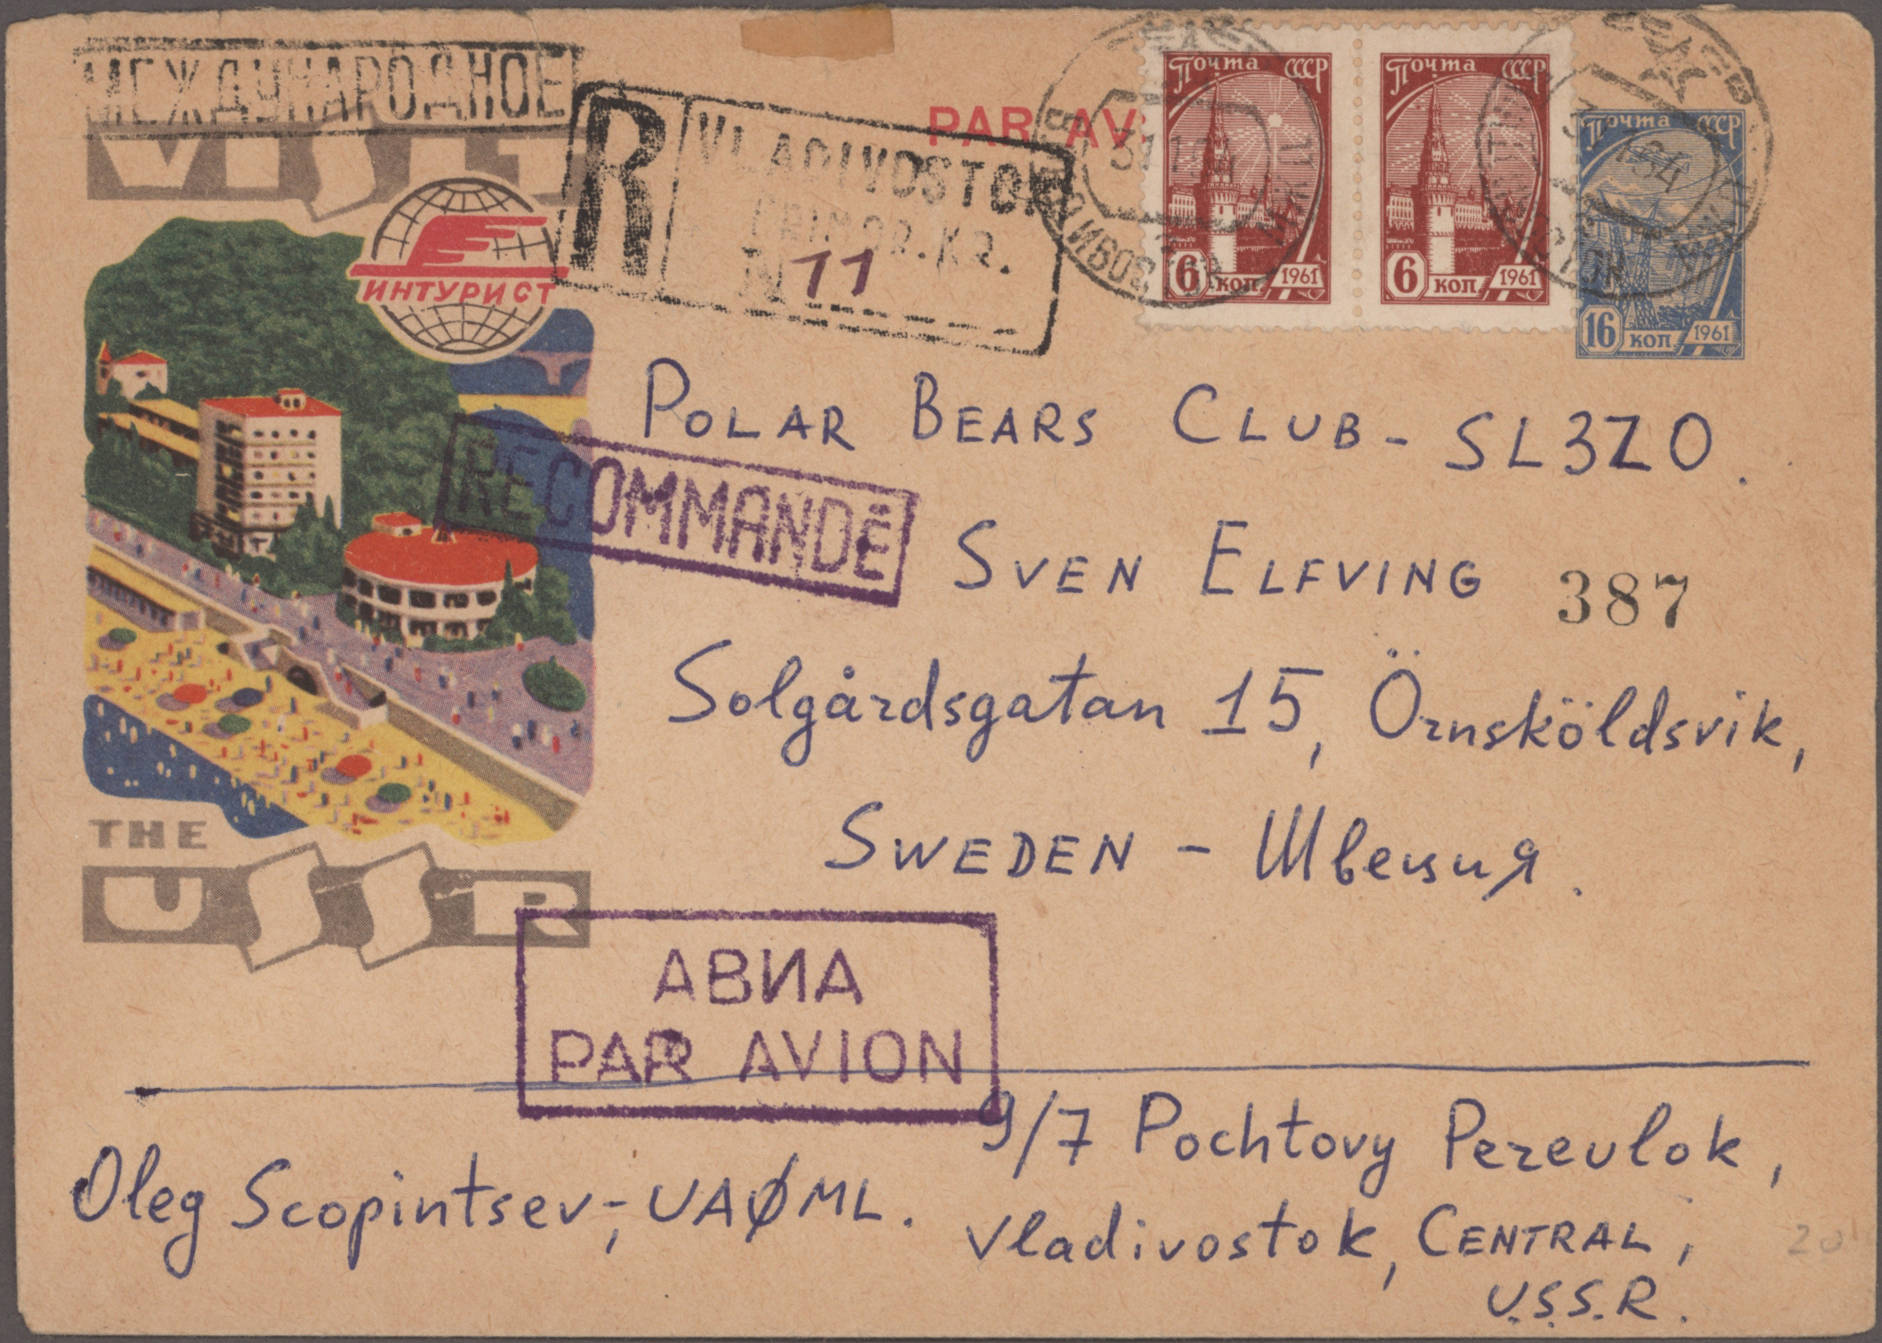 МЕЖДУНАРОДНОЕ
VISIT
ИНТУРИСТ
R
VLADIVOSTOK
PRIMOR.KR.
N 11
PAR AV
Почта СССР
6 коп. 1961
Почта СССР
6 коп. 1961
Почта СССР
16 коп. 1961
POLAR BEARS CLUB - SL3ZO.
RECOMMANDÉ
SVEN ELFVING
387
Solgårdsgatan 15, Örnsköldsvik,
SWEDEN - Швеция.
THE
USSR
АВИА
PAR AVION
9/7 Pochtovy Pereulok,
Oleg Scopintsev, - UAØML.
Vladivostok, CENTRAL,
U.S.S.R.